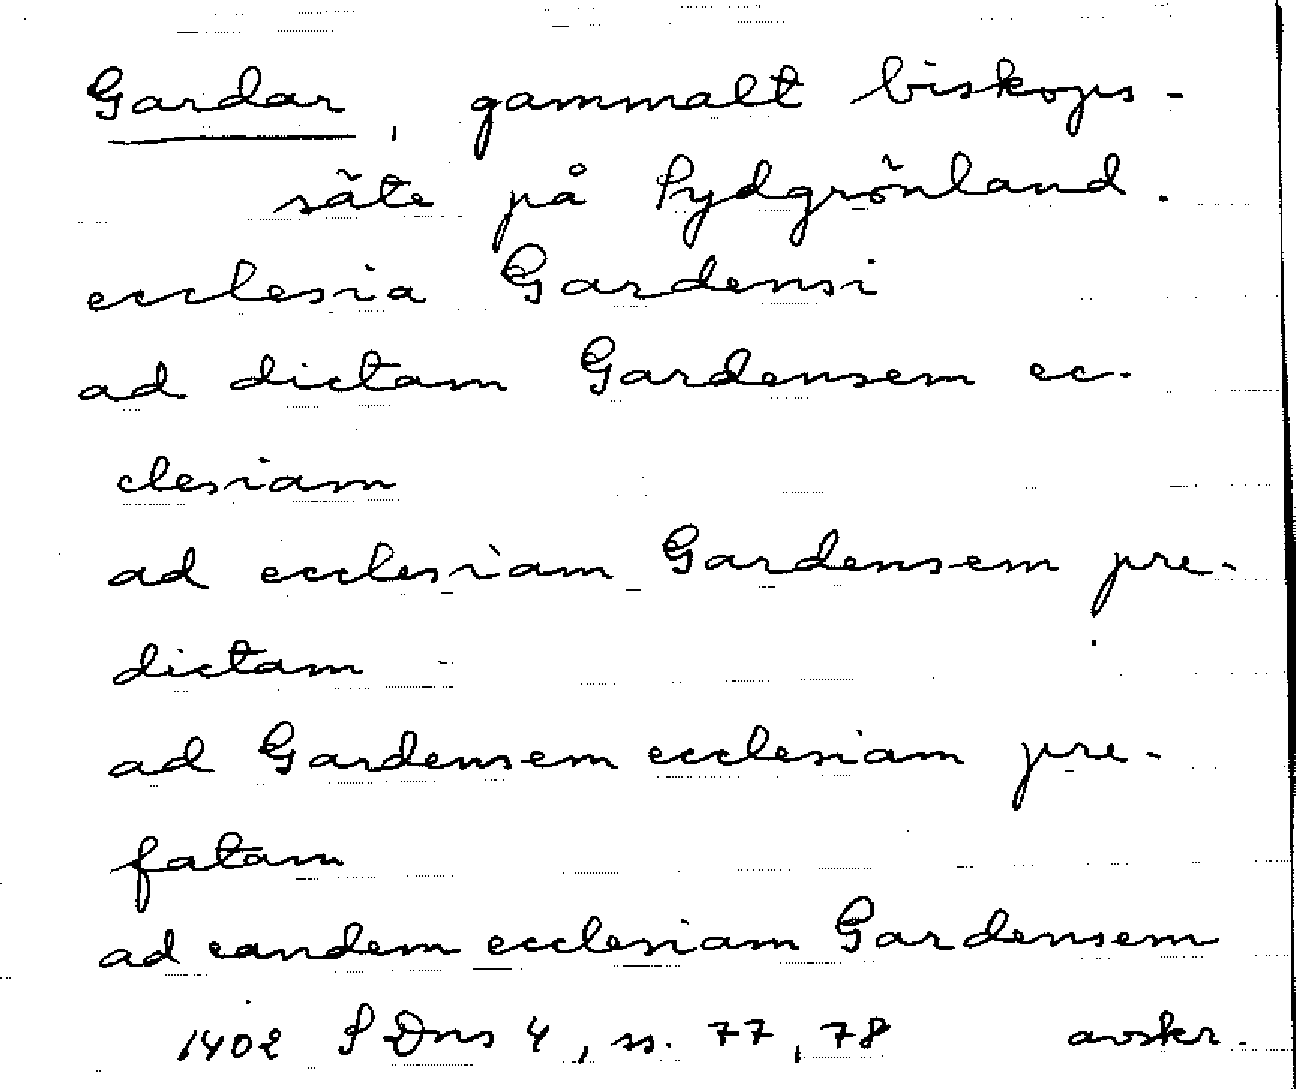 Gardar, gammalt biskops-
säte på Sydgrönland.
ecclesia Gardensi
ad dictam Gardensem ec-
clesiam
ad ecclesiam Gardensem pre-
dictam
ad Gardensem ecclesiam pre-
fatam
ad eandem ecclesiam Gardensem
1402 SDns 4, ss. 77, 78 avskr.